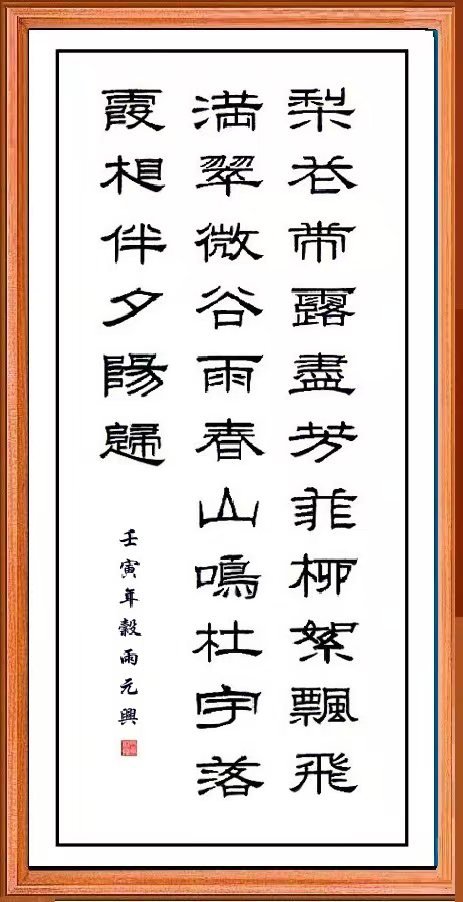 梨花带露盡芳菲柳絮飄飛
満翠微谷雨春山鳴杜宇落
霞相伴夕陽歸
壬寅年穀雨元興